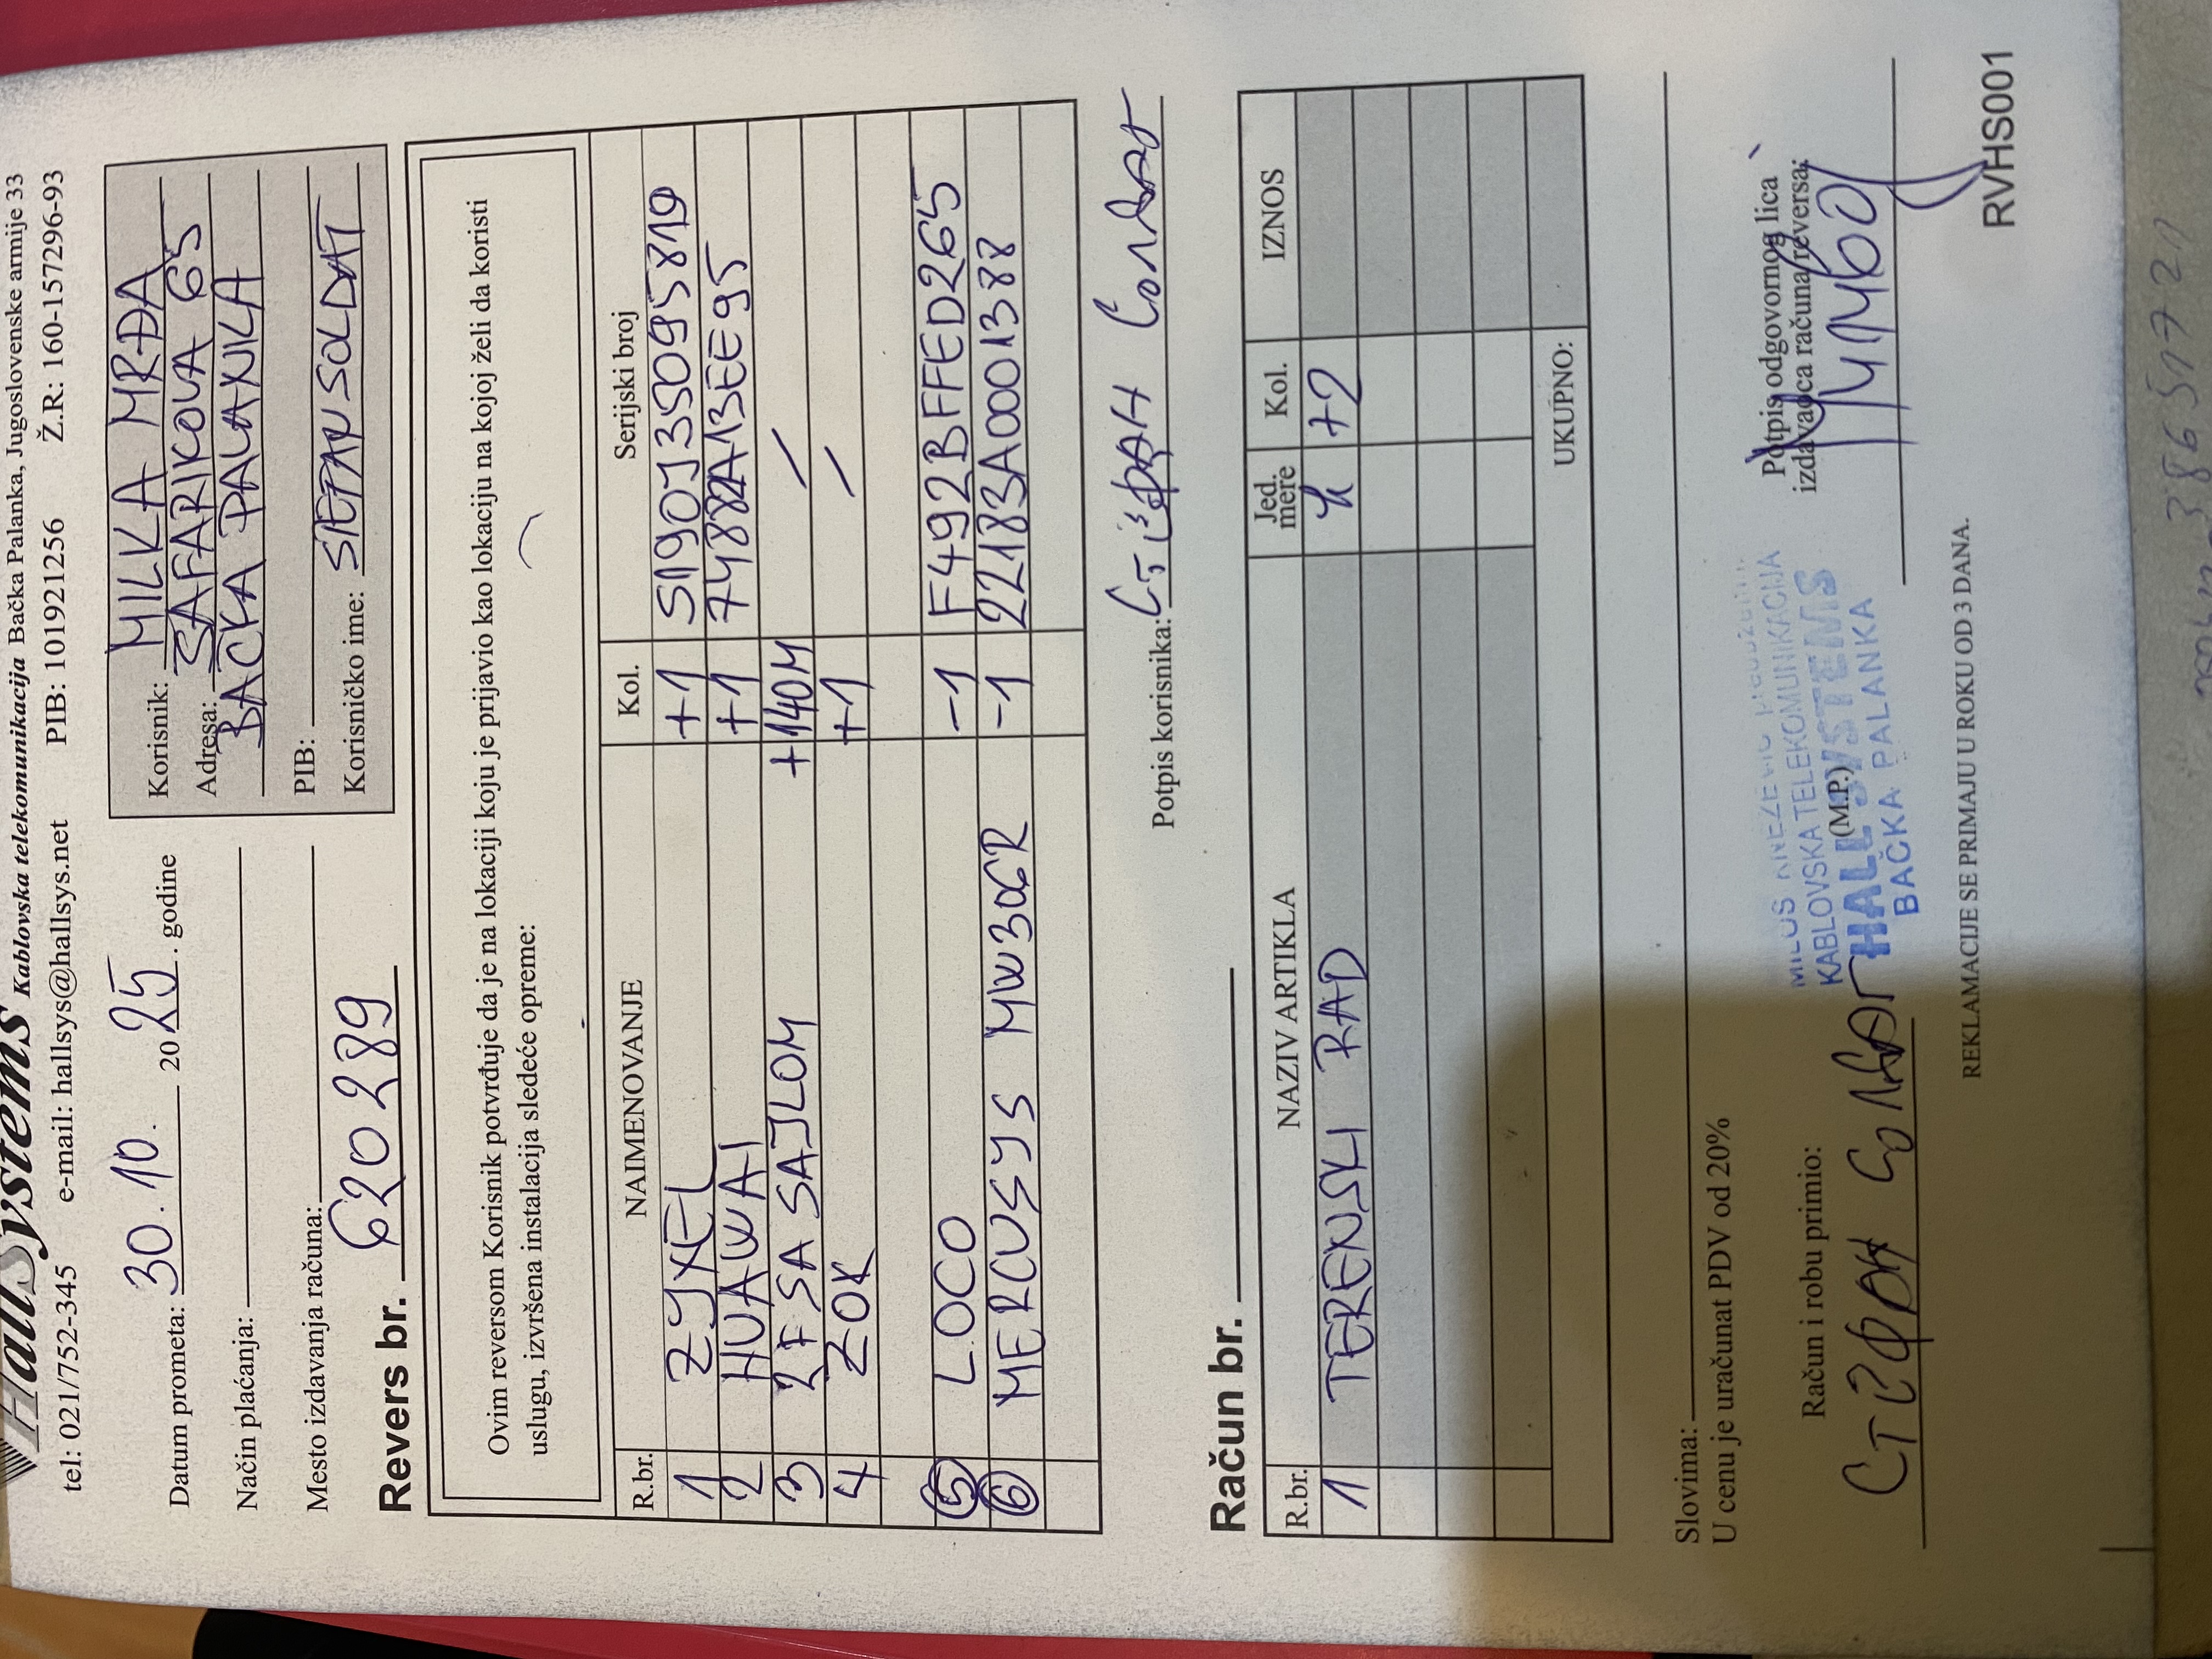 HallSystems Kablovska telekomunikacija Bačka Palanka, Jugoslovenske armije 33
tel: 021/752-345 e-mail: hallsys@hallsys.net PIB: 101921256 Ž.R: 160-157296-93
Datum prometa: 30. 10. 2025. godine
Način plaćanja:
Mesto izdavanja računa:
Korisnik: MILKA MRĐA
Adresa: ŠAFARIKOVA 65
BAČKA PALANKA
PIB:
Korisničko ime: STEFAN SOLDAT
Revers br. 620289
Ovim reversom Korisnik potvrđuje da je na lokaciji koju je prijavio kao lokaciju na kojoj želi da koristi
uslugu, izvršena instalacija sledeće opreme:
R.br. NAIMENOVANJE Kol. Serijski broj
1 ZYXEL +1 S190J35095819
2 HUAWAI +1 74882A13EE95
3 2F SA SAJLOM +140M /
4 ZOK +1 /
5 LOCO -1 F492BFFED265
6 MERCUSYS MW306R -1 22183A0001388
Potpis korisnika: Стефан Солдат
Račun br.
R.br. NAZIV ARTIKLA Jed. mere Kol. IZNOS
1 TERENSKI RAD h +2
UKUPNO:
Slovima:
U cenu je uračunat PDV od 20%
Račun i robu primio:
Стефан Солдат
(M.P.)
KABLOVSKA TELEKOMUNIKACIJA
HALL SYSTEMS
BAČKA PALANKA
Potpis odgovornog lica
izdavaoca računa/reversa:
REKLAMACIJE SE PRIMAJU U ROKU OD 3 DANA.
RVHS001